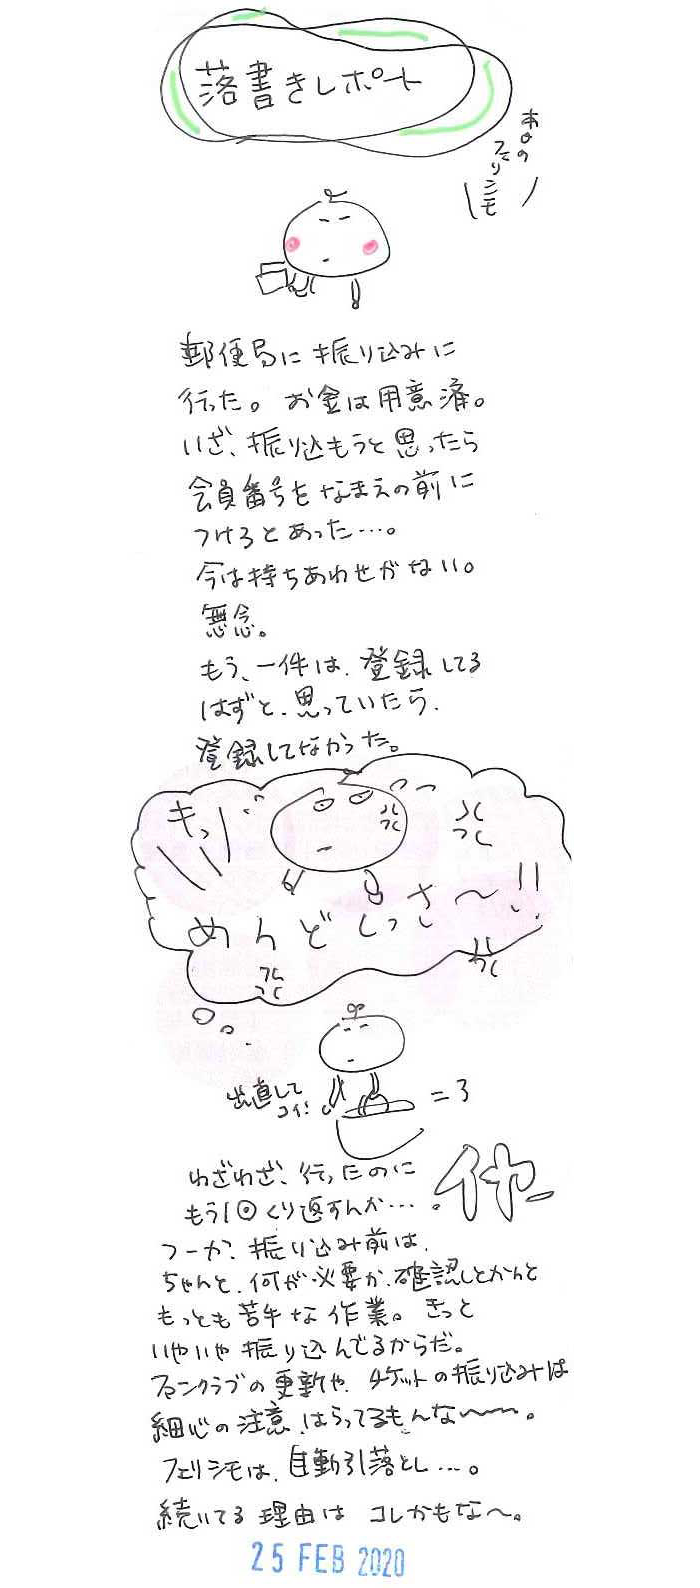 落書きレポート
本日の
フェリシモ
郵便局に振り込みに
行った。お金は用意済。
いざ、振り込もうと思ったら
会員番号をなまえの前に
つけろとあった…。
今は持ちあわせがない。
無念。
もう、一件は、登録してる
はずと、思っていたら、
登録してなかった。
キッ
めんどくっさ〜!!
出直して
コイ!
=3
わざわざ、行ったのに
もう1回くり返すんか…。
イヤー
つーか、振り込み前は、
ちゃんと、何が必要か、確認しとかんと
もっとも苦手な作業。きっと
いやいや振り込んでるからだ。
ファンクラブの更新や、チケットの振り込みは
細心の注意、はらってるもんな〜〜。
フェリシモは、自動引落とし…。
続いてる理由は コレかもな〜。
25 FEB 2020